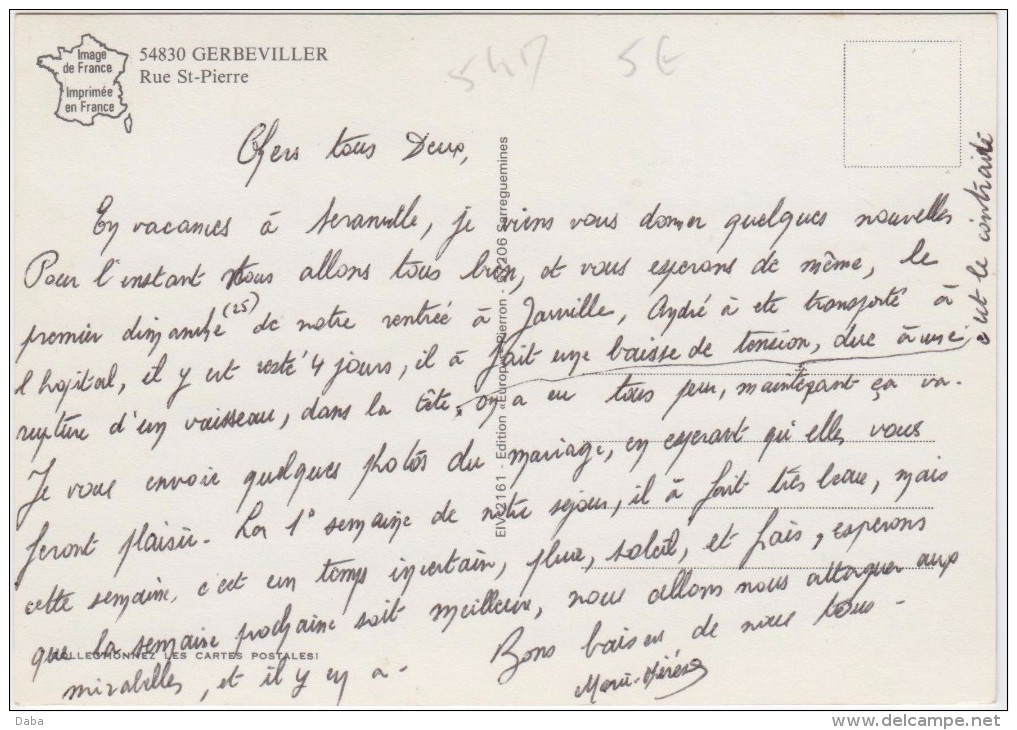 Image
de France
Imprimée
en France
54830 GERBEVILLER
Rue St-Pierre
5 €
Chers tous Deux,
En vacances à seranville, je viens vous donner quelques nouvelles
Pour l'instant Nous allons tous bien, et vous esperons de même, le
premier dimanche (25) de notre rentrée à Jarville, André à eté transporté à
l hopital, il y est resté 4 jours, il à fait une baisse de tension, due à une
c est le contraire
rupture d'un vaisseau, dans la tête, on a eu tous peur, maintenant ça va.
Je vous envoie quelques photos du mariage, en esperant qu'elles vous
feront plaisir. La 1° semaine de notre sejour, il à fait très beau, mais
cette semaine, c'est un temps incertain, pluie, soleil, et frais, esperons
que la semaine prochaine soit meilleure, nous allons nous attaquer aux
mirabelles, et il y en a -
Bons baisers de nous tous -
Marie-Thérèse
COLLECTIONNEZ LES CARTES POSTALES!
EIV 2161 - Edition «Europ» Pierron - 57206 Sarreguemines
Daba
www.delcampe.net